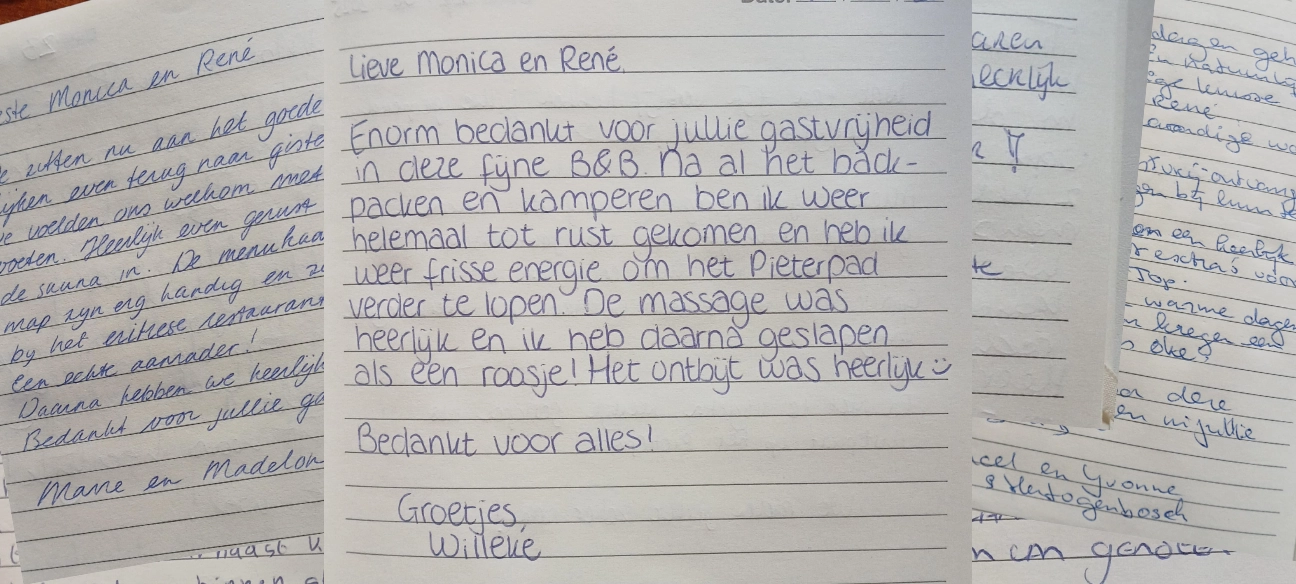 Monica en René
zitten nu aan het goede
even terug naar giste
voelden ons welkom met
Heerlijk even gerust
de sauna in. De menukaa
map zyn erg handig en
by het eritrese restauran
een echte aanrader!
Daarna hebben we heerlijk
Bedankt voor jullie ga
en Madelon
Lieve Monica en René,
Enorm bedankt voor jullie gastvrijheid
in deze fijne B&B. Na al het back-
packen en kamperen ben ik weer
helemaal tot rust gekomen en heb ik
weer frisse energie om het Pieterpad
verder te lopen. De massage was
heerlijk en ik heb daarna geslapen
als een roosje! Het ontbijt was heerlijk
Bedankt voor alles!
Groetjes,
Willeke
aren
ecklijk
te
dagen geh
René
en bij
een heerlijk
extra's voor
Top.
warme dagen
kregen een
oke
deze
en jullie
cel en Yvonne
s Hertogenbosch
naast
binnen